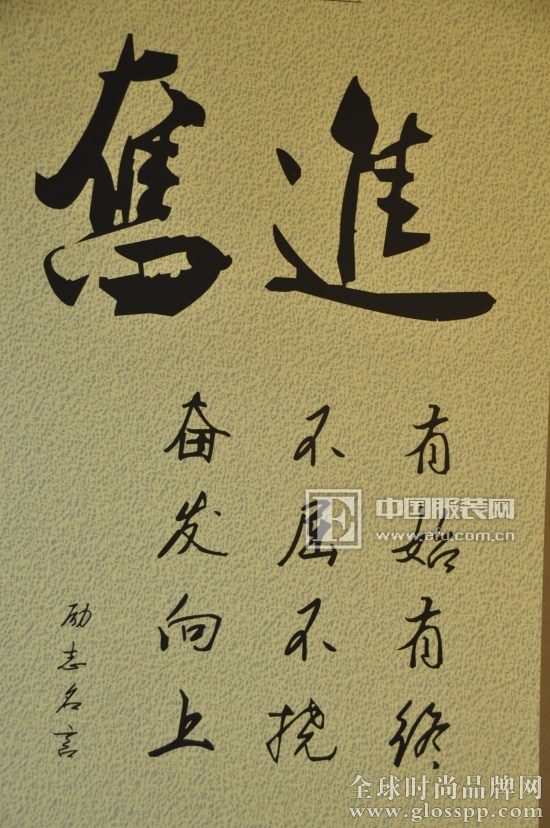 奮進
有始有终
不屈不挠
奋发向上
励志名言
中国服装网
www.efu.com.cn
全球时尚品牌网
www.glosspp.com